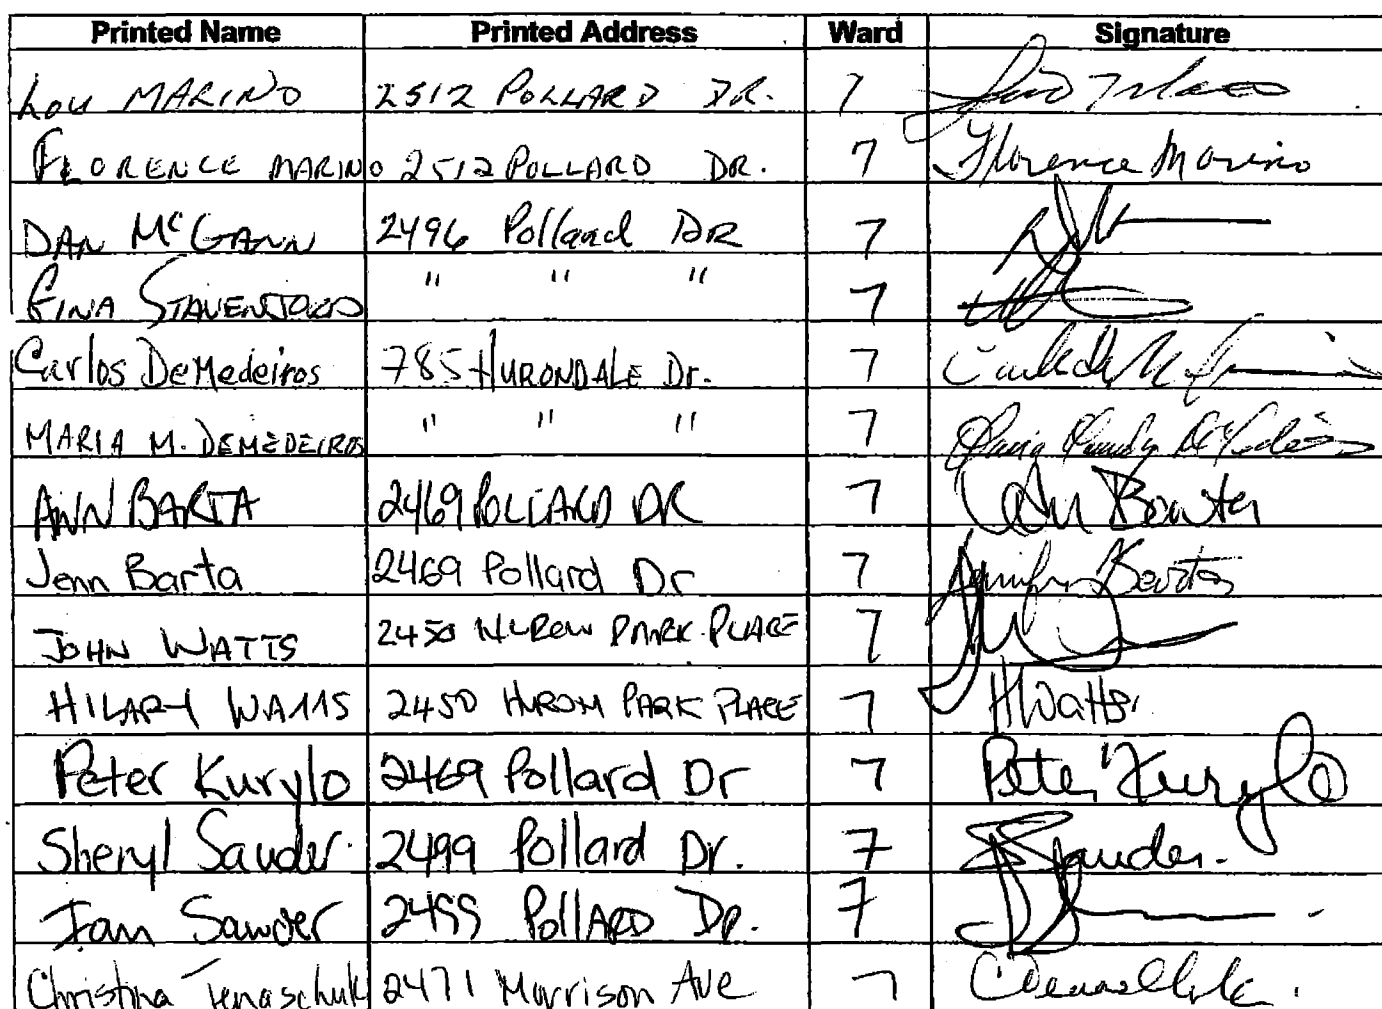 Printed Name Printed Address Ward Signature
Lou MARINO 2512 POLLARD DR. 7
FLORENCE MARINO 2512 POLLARD DR. 7 Florence Marino
DAN McGANN 2496 Pollard DR 7
GINA " " " 7
Carlos DeMedeiros 785 HURONDALE Dr. 7
MARIA M. DEMEDEIROS " " " 7
ANN BARTA 2469 POLLARD DR 7 Ann Barta
Jenn Barta 2469 Pollard Dr 7 Jennifer Barta
JOHN WATTS 2450 HURON PARK PLACE 7
HILARY WATTS 2450 HURON PARK PLACE 7 HWatts
Peter Kurylo 2469 Pollard Dr 7 Peter Kurylo
Sheryl Sauder 2499 Pollard Dr. 7 SSauder.
Ian Sauder 2499 POLLARD DR. 7
Christina Tenaschuk 2471 Morrison Ave 7